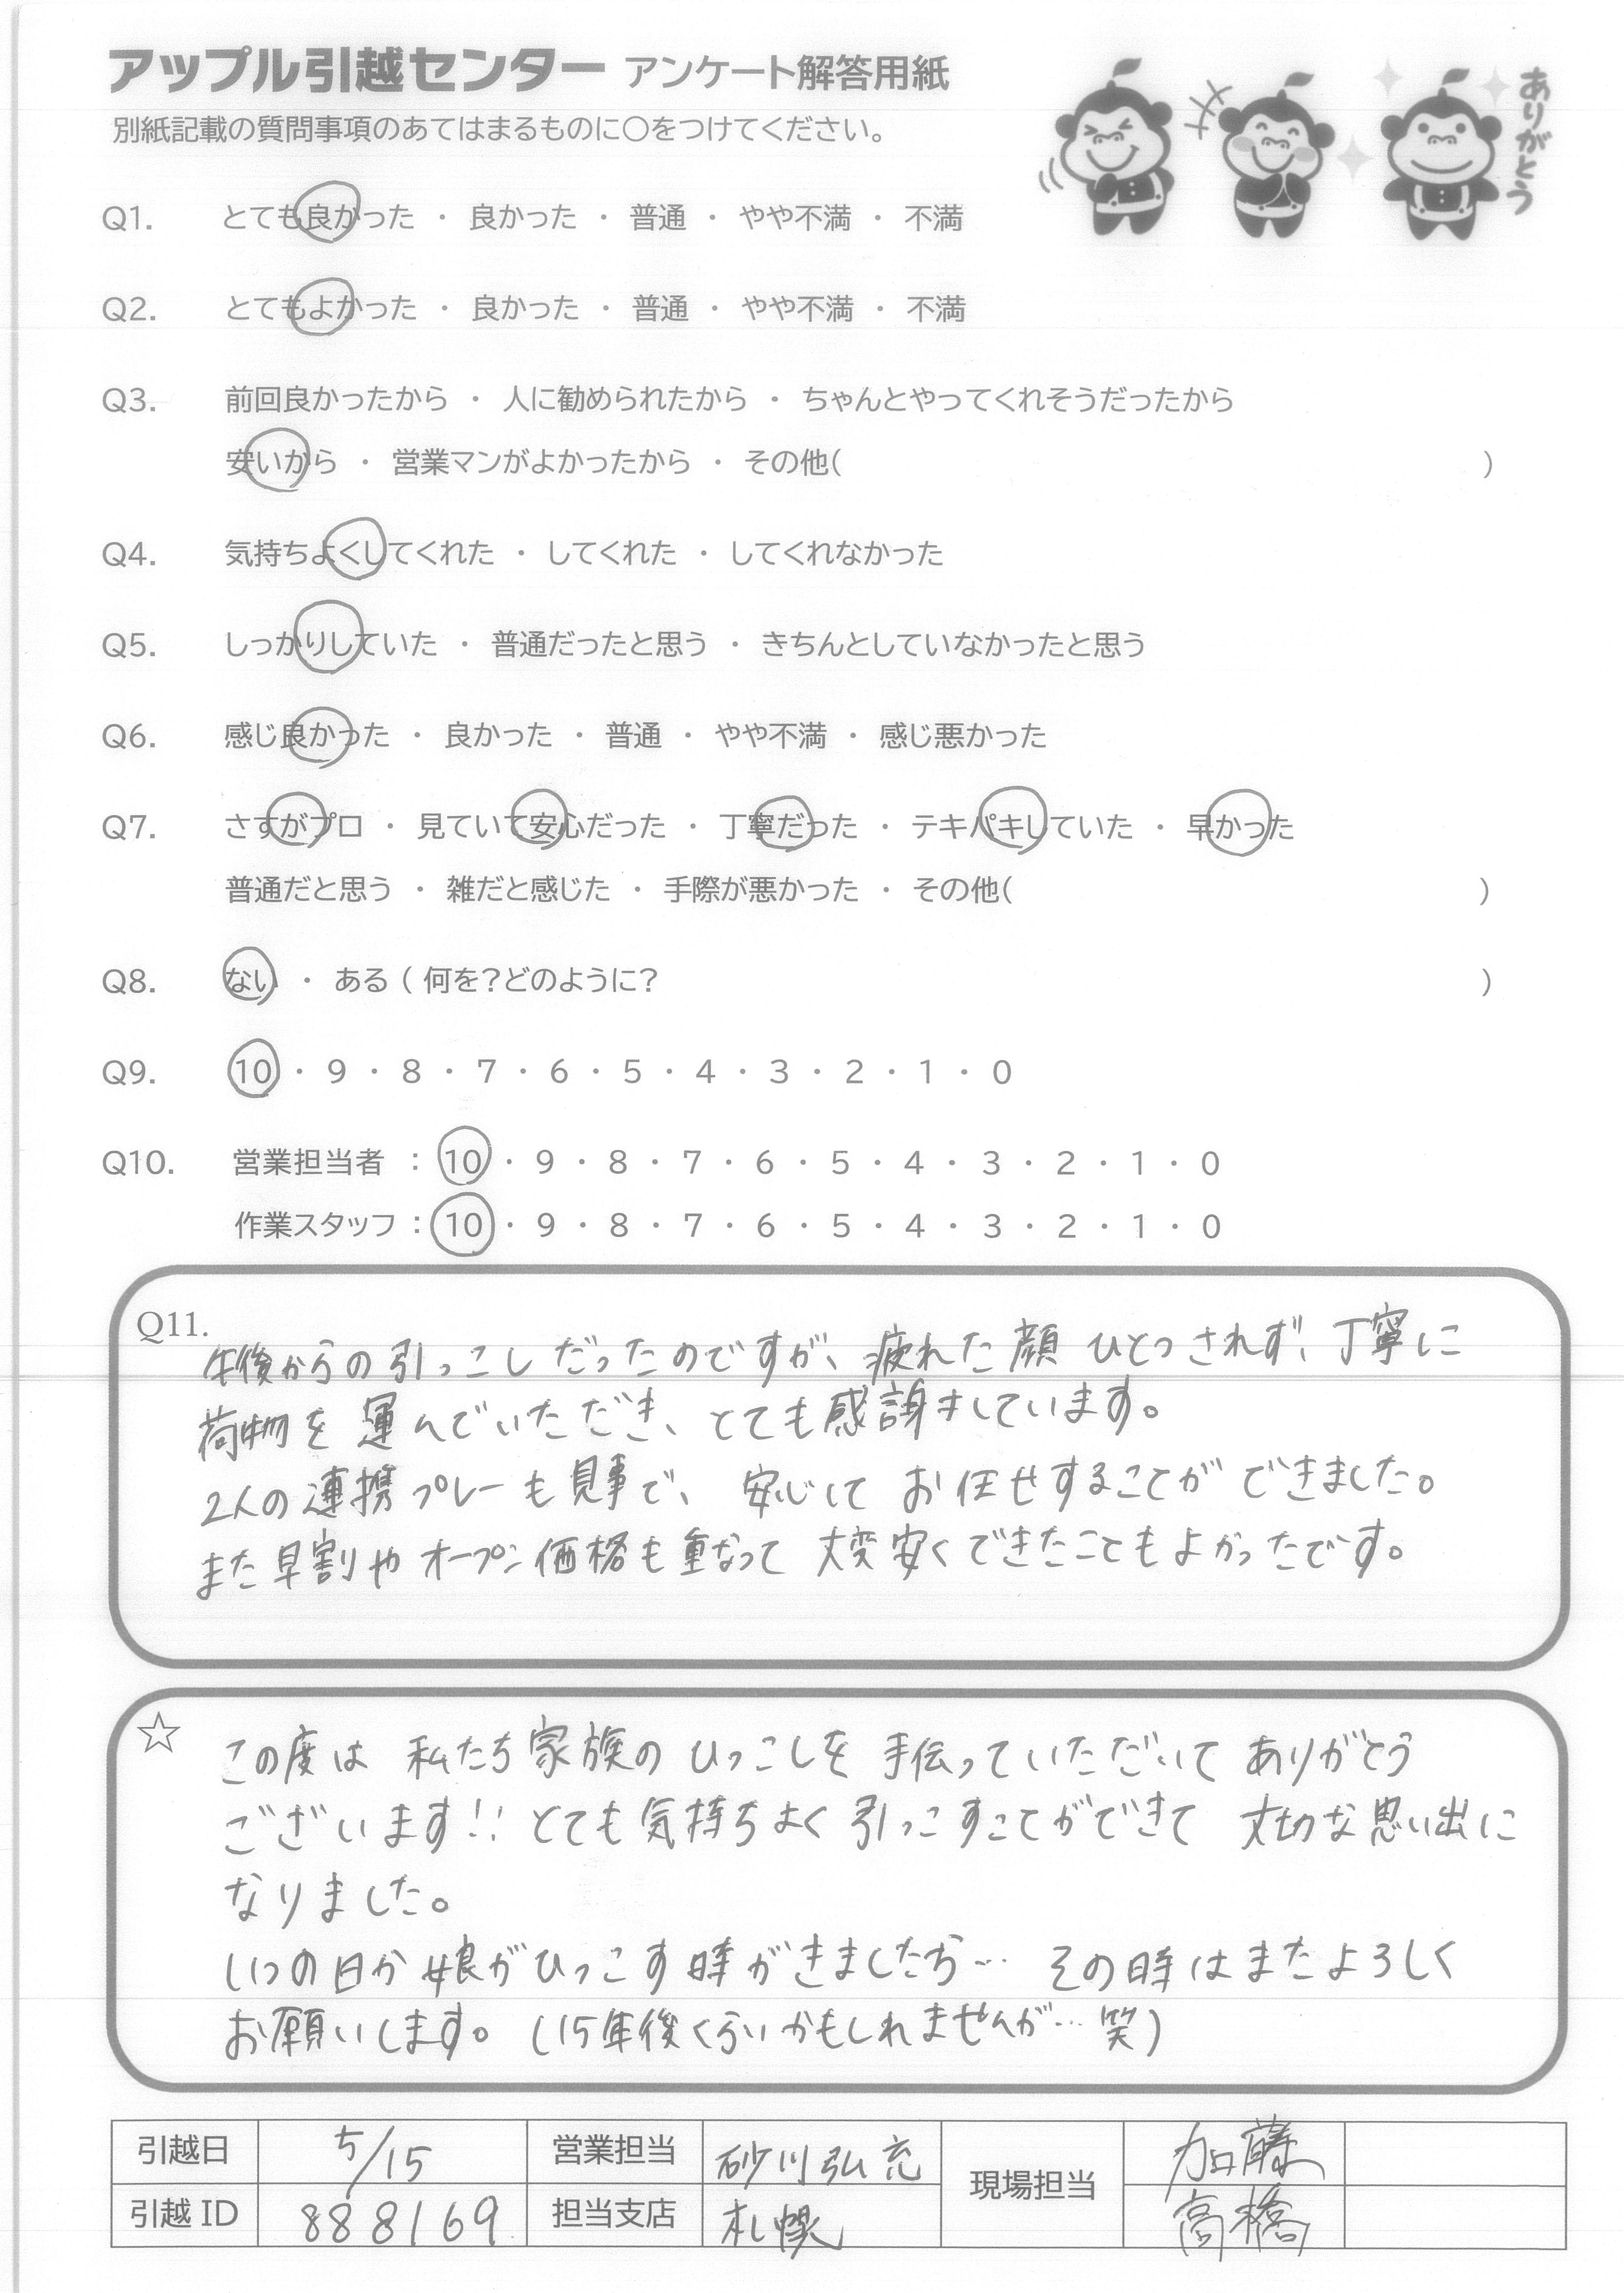 アップル引越センター アンケート解答用紙
ありがとう
別紙記載の質問事項のあてはまるものに○をつけてください。
Q1. とても良かった ・ 良かった ・ 普通 ・ やや不満 ・ 不満
Q2. とてもよかった ・ 良かった ・ 普通 ・ やや不満 ・ 不満
Q3. 前回良かったから ・ 人に勧められたから ・ ちゃんとやってくれそうだったから
安いから ・ 営業マンがよかったから ・ その他( )
Q4. 気持ちよくしてくれた ・ してくれた ・ してくれなかった
Q5. しっかりしていた ・ 普通だったと思う ・ きちんとしていなかったと思う
Q6. 感じ良かった ・ 良かった ・ 普通 ・ やや不満 ・ 感じ悪かった
Q7. さすがプロ ・ 見ていて安心だった ・ 丁寧だった ・ テキパキしていた ・ 早かった
普通だと思う ・ 雑だと感じた ・ 手際が悪かった ・ その他( )
Q8. ない ・ ある ( 何を?どのように? )
Q9. 10 ・ 9 ・ 8 ・ 7 ・ 6 ・ 5 ・ 4 ・ 3 ・ 2 ・ 1 ・ 0
Q10. 営業担当者 : 10 ・ 9 ・ 8 ・ 7 ・ 6 ・ 5 ・ 4 ・ 3 ・ 2 ・ 1 ・ 0
作業スタッフ : 10 ・ 9 ・ 8 ・ 7 ・ 6 ・ 5 ・ 4 ・ 3 ・ 2 ・ 1 ・ 0
Q11.
午後からの引っこしだったのですが、疲れた顔ひとつされず、丁寧に
荷物を運んでいただき、とても感謝しています。
2人の連携プレーも見事で、安心してお任せすることができました。
また早割やオープン価格も重なって大変安くできたこともよかったです。
☆ この度は私たち家族のひっこしを手伝っていただいてありがとう
ございます!! とても気持ちよく引っこすことができて大切な思い出に
なりました。
いつの日か娘がひっこす時がきましたら… その時はまたよろしく
お願いします。(15年後くらいかもしれませんが…笑)
引越日 5/15 営業担当 砂川弘充 現場担当 加藤
引越ID 888169 担当支店 札幌 高橋